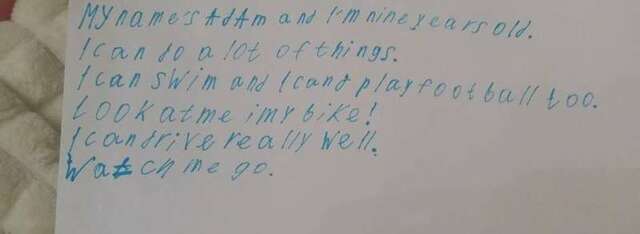 My name's AdAm and I'm nine years old.
I can do a lot of things.
I can swim and I cand play football too.
Look at me imy bike!
I can drive really well.
Watch me go.